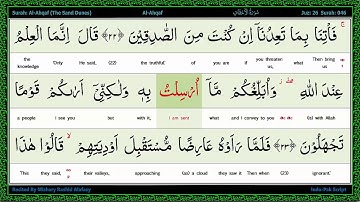 Surah: Al-Ahqaf (The Sand Dunes) Al-Ahqaf Juz: 26 Surah: 046
فَاْتِنَا بِمَا تَعِدُنَاۤ اِنْ كُنْتَ مِنَ الصّٰدِقِيْنَ ﴿۲۲﴾ قَالَ اِنَّمَا الْعِلْمُ
the knowledge "Only He said, (22) the truthful." of you are if you threaten us, what Then bring us
عِنْدَ اللّٰهِ ۖ وَاُبَلِّغُكُمْ مَّاۤ اُرْسِلْتُ بِهٖ وَلٰكِنِّيْۤ اَرٰىكُمْ قَوْمًا
a people I see you but with it, I am sent what and I convey to you Allah (is) with
تَجْهَلُوْنَ ﴿۲۳﴾ فَلَمَّا رَاَوْهُ عَارِضًا مُّسْتَقْبِلَ اَوْدِيَتِهِمْ ۙ قَالُوْا هٰذَا
"This they said, their valleys, approaching (as) a cloud they saw it Then when (23) ignorant."
Recited By Mishary Rashid Alafasy Indo-Pak Script